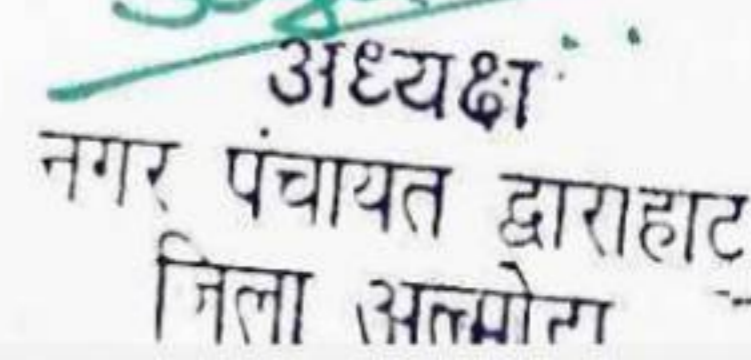 अध्यक्ष
नगर पंचायत द्वाराहाट
जिला अल्मोडा